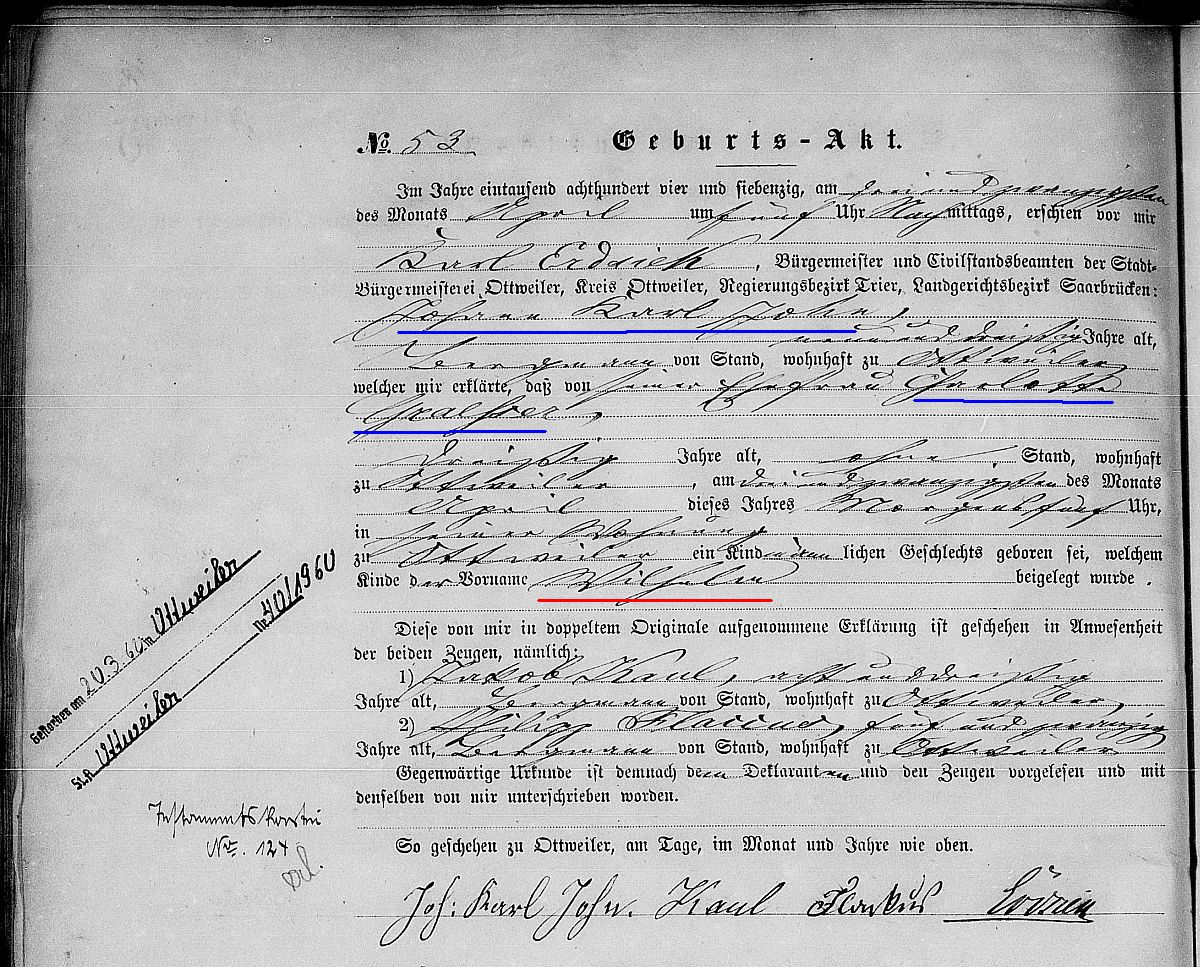 No. 53 Geburts-Akt.
Im Jahre eintausend achthundert vier und siebenzig, am dreiundzwanzigsten
des Monats April um fünf Uhr Nachmittags, erschien vor mir
Karl , Bürgermeister und Civilstandsbeamten der Stadt-
Bürgermeisterei Ottweiler, Kreis Ottweiler, Regierungsbezirk Trier, Landgerichtsbezirk Saarbrücken:
Johann Karl John,
neununddreißig Jahre alt,
Bergmann von Stand, wohnhaft zu Ottweiler,
welcher mir erklärte, daß von seiner Ehefrau Charlotte
,
dreißig Jahre alt, ohne Stand, wohnhaft
zu Ottweiler, am dreiundzwanzigsten des Monats
April dieses Jahres Morgens fünf Uhr,
in seiner Wohnung
zu Ottweiler ein Kind männlichen Geschlechts geboren sei, welchem
Kinde der Vorname Wilhelm beigelegt wurde.
Diese von mir in doppeltem Originale aufgenommene Erklärung ist geschehen in Anwesenheit
der beiden Zeugen, nämlich:
1) Jakob Kaul, acht und dreißig
Jahre alt, Bergmann von Stand, wohnhaft zu Ottweiler,
2) Philipp , fünf und zwanzig
Jahre alt, Bergmann von Stand, wohnhaft zu Ottweiler
Gegenwärtige Urkunde ist demnach dem Deklaranten und den Zeugen vorgelesen und mit
denselben von mir unterschrieben worden.
So geschehen zu Ottweiler, am Tage, im Monat und Jahre wie oben.
Joh: Karl John. Kaul
Gestorben am 20.3.60 in Ottweiler
St.A. Ottweiler Nr. 40/1960
Testamentskartei
No. 124